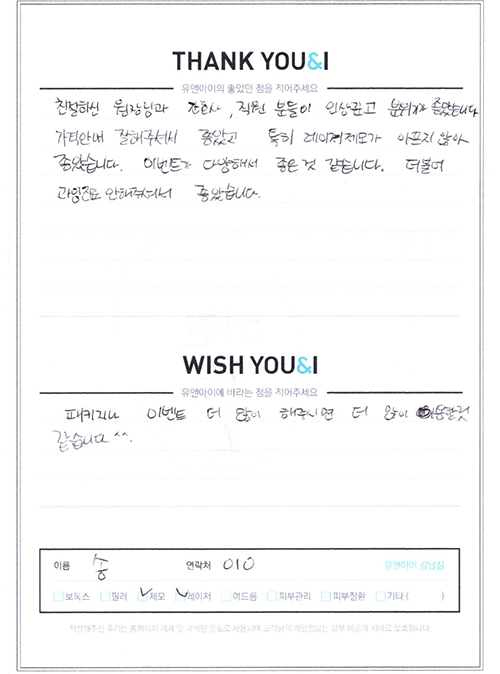 THANK YOU&I
유앤아이의 좋았던 점을 적어주세요
친절하신 원장님과 간호사, 직원 분들이 인상깊고 분위기가 좋았습니다
가격안내 잘해주셔서 좋았고 특히 레이저제모가 아프지 않아
좋았습니다. 이벤트가 다양해서 좋은 것 같습니다. 더불어
과잉진료 안해주셔서 좋았습니다.
WISH YOU&I
유앤아이에 바라는 점을 적어주세요
패키지나 이벤트 더 많이 해주시면 더 많이 이용할것
같습니다 ^^.
이름 송 연락처 010 유앤아이 강남점
보톡스 필러 제모 레이저 여드름 피부관리 피부질환 기타 ( )
작성해주신 후기는 홈페이지 게재 및 마케팅 용도로 사용되며 고객님의 개인정보는 일부 비공개 처리로 보호됩니다.